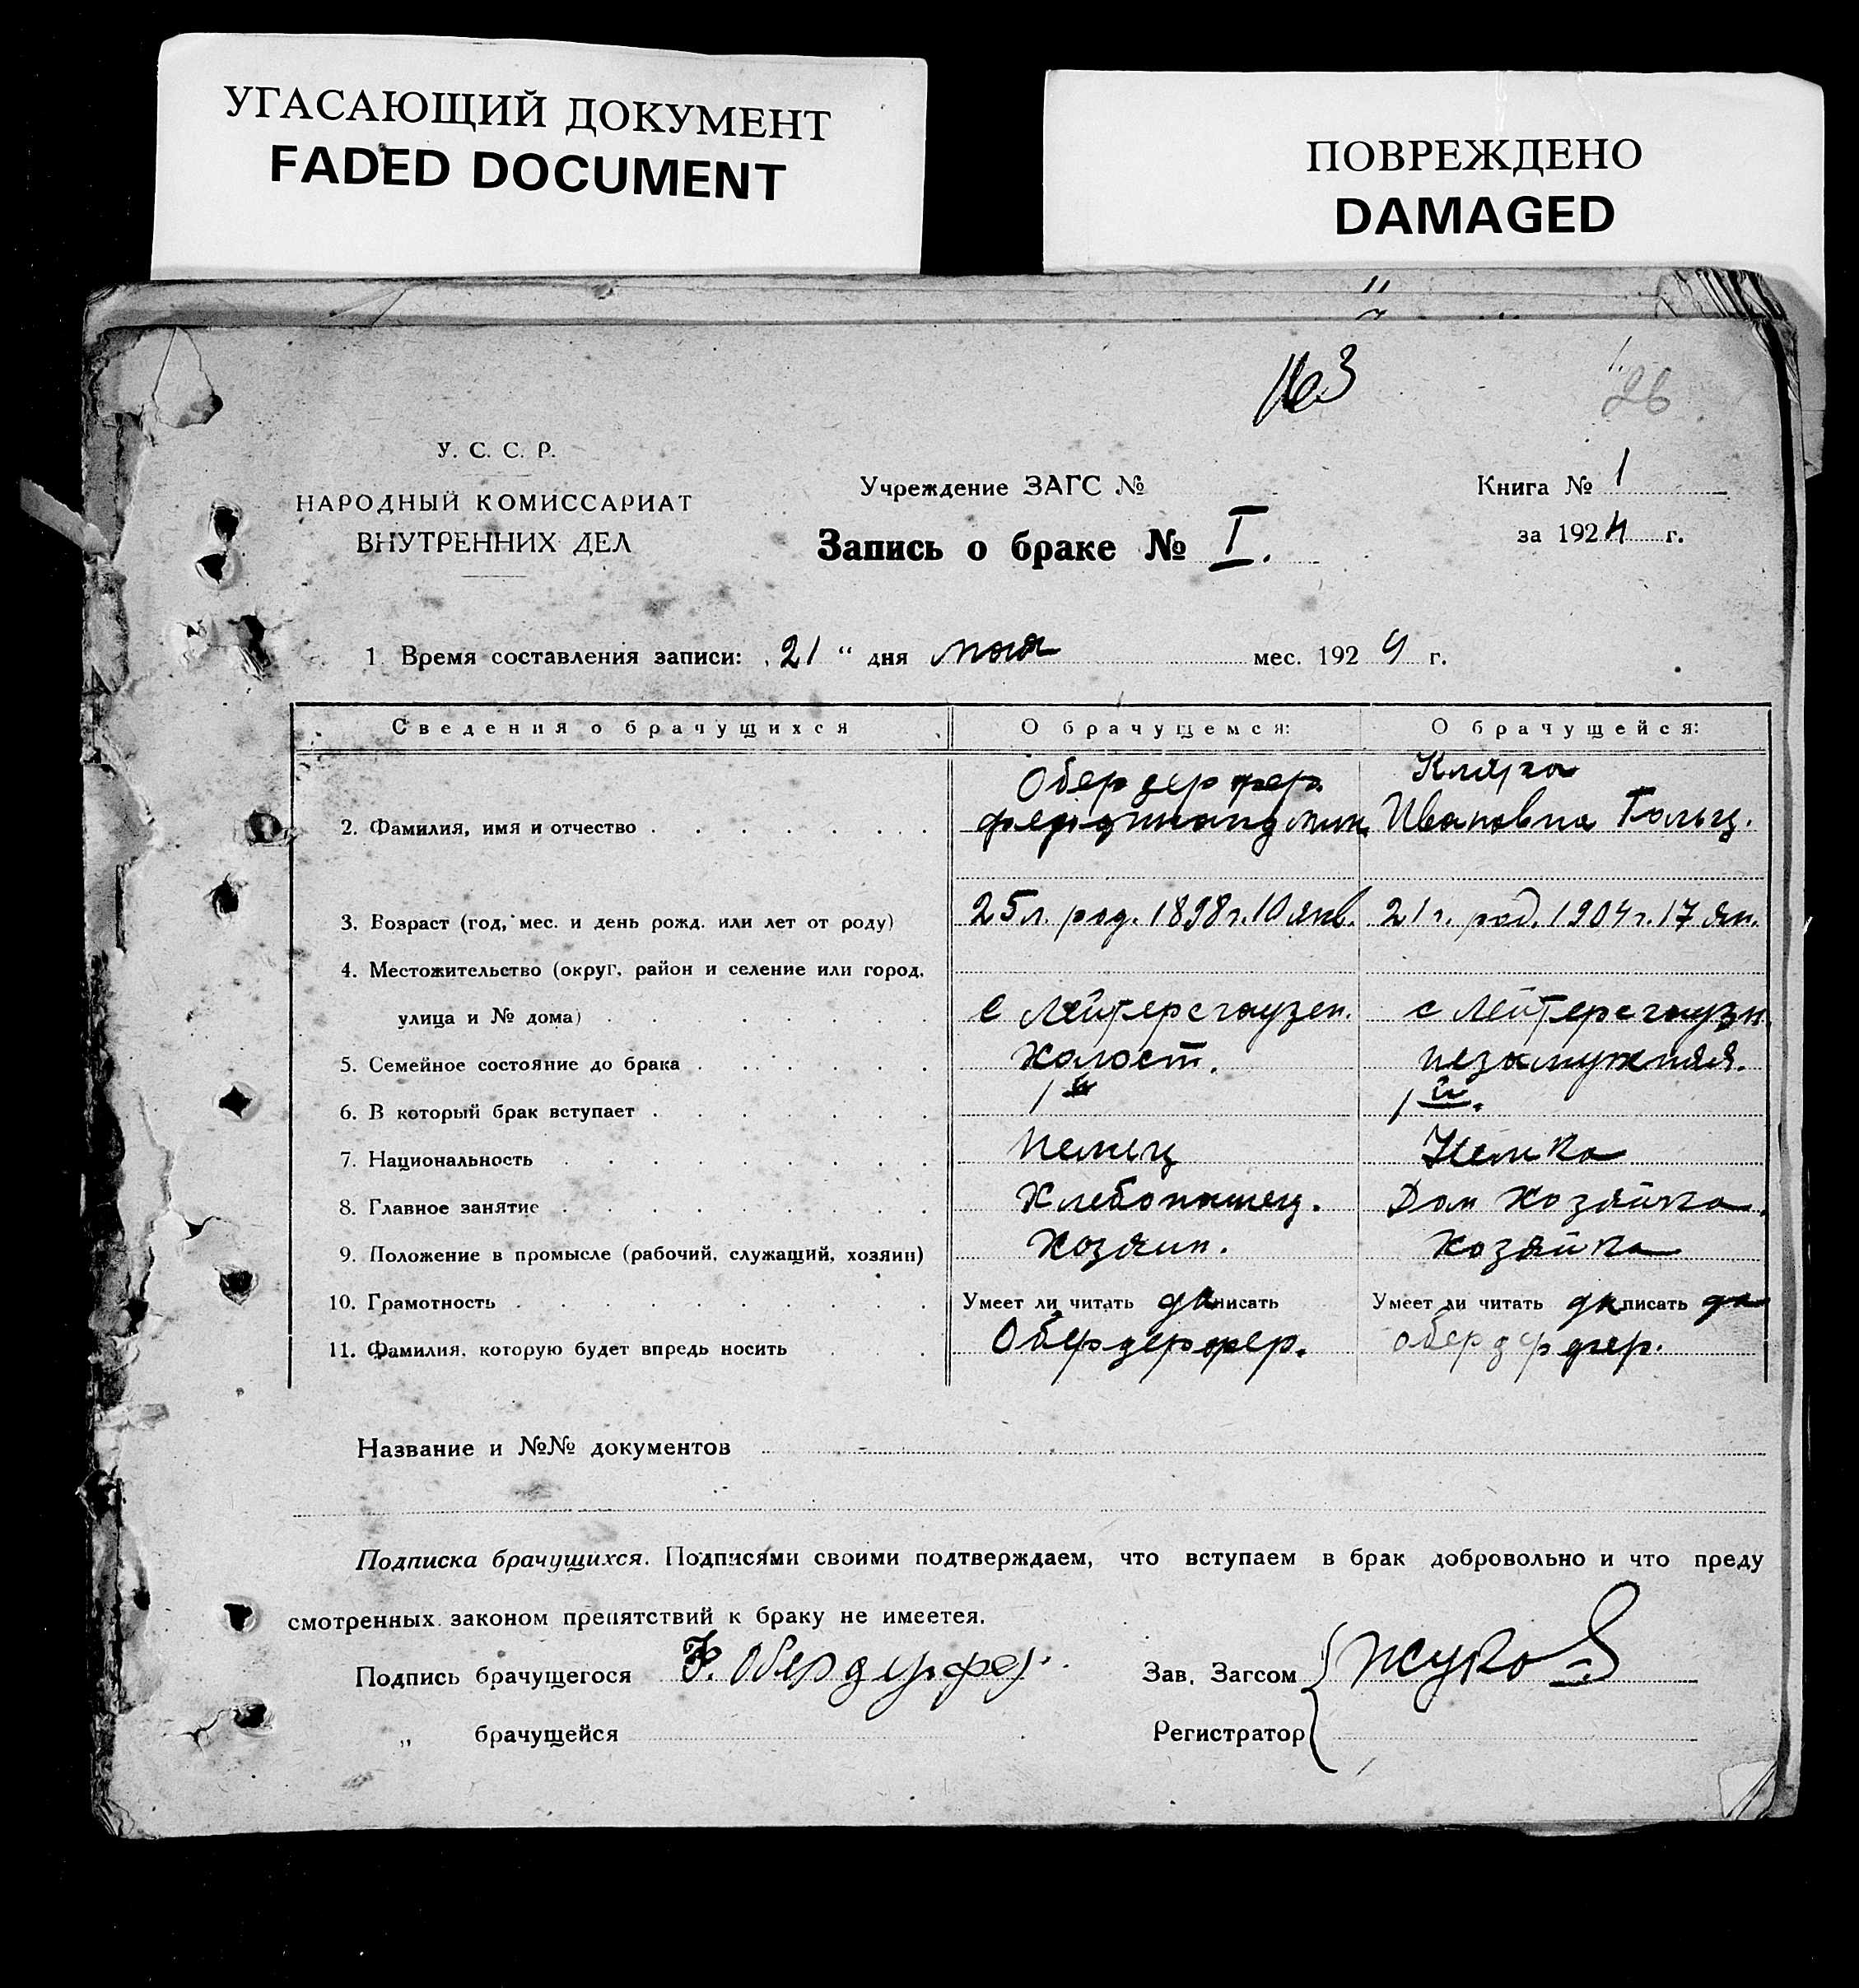 УГАСАЮЩИЙ ДОКУМЕНТ
FADED DOCUMENT
ПОВРЕЖДЕНО
DAMAGED
163
26
У. С. С. Р.
НАРОДНЫЙ КОМИССАРИАТ
ВНУТРЕННИХ ДЕЛ
Учреждение ЗАГС №
Запись о браке № I.
Книга № 1
за 1924 г.
1. Время составления записи: „21“ дня мая мес. 1924 г.
Сведения о брачущихся О брачущемся: О брачущейся:
Обердерфер. Клара
2. Фамилия, имя и отчество Фердинанд Ивановна Гольц.
3. Возраст (год, мес. и день рожд. или лет от роду) 25 л. род. 1898 г. 10 янв. 21 г. род. 1904 г. 17 ян.
4. Местожительство (округ, район и селение или город,
улица и № дома) с Лейтерсгаузен. с Лейтерсгаузн
5. Семейное состояние до брака Холост. незамужняя.
6. В который брак вступает 1й 1й.
7. Национальность Немец Немка
8. Главное занятие Хлебопашец. Дом хозяйка.
9. Положение в промысле (рабочий, служащий, хозяин) Хозяин. Хозяйка
10. Грамотность Умеет ли читать да писать Умеет ли читать да писать да
11. Фамилия, которую будет впредь носить Обердерфер. Обердерфер.
Название и №№ документов
Подписка брачущихся. Подписями своими подтверждаем, что вступаем в брак добровольно и что преду
смотренных законом препятствий к браку не имеется.
Подпись брачущегося Ф. Обердерфер. Зав. Загсом Жуков
„ брачущейся Регистратор